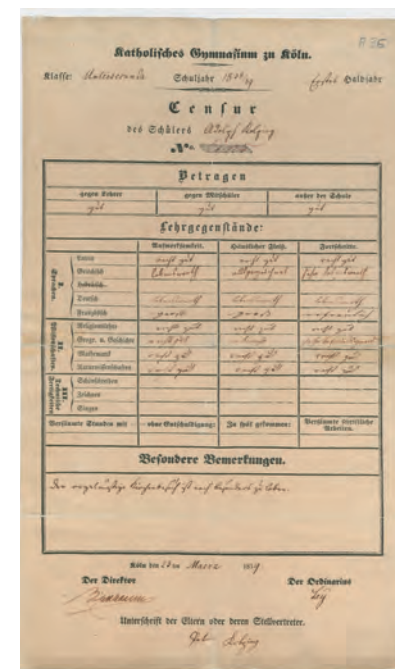 Katholisches Gymnasium zu Köln.
Klasse: Untersecunda Schuljahr 1838/39 Erstes Halbjahr
Censur
des Schülers Adolph Kolping
No.
Betragen
gegen Lehrer gegen Mitschüler außer der Schule
gut gut gut
Lehrgegenstände:
Aufmerksamkeit. Häuslicher Fleiß. Fortschritte.
I. Sprachen.
Latein recht gut recht gut recht gut
Griechisch lobenswerth ausgezeichnet sehr lobenswerth
Hebräisch
Deutsch lobenswerth lobenswerth lobenswerth
Französisch groß groß erfreulich
II. Wissenschaften.
Religionslehre recht gut recht gut recht gut
Geogr. u. Geschichte recht gut
Mathematik recht gut recht gut recht gut
Naturwissenschaften recht gut recht gut recht gut
III. Technische Fertigkeiten
Schönschreiben
Zeichnen
Singen
Versäumte Stunden mit ohne Entschuldigung: Zu spät gekommen: Versäumte schriftliche Arbeiten.
Besondere Bemerkungen.
Der ist noch besonders zu loben.
Köln den März 1839
Der Direktor Der Ordinarius
Birnbaum Ley
Unterschrift der Eltern oder deren Stellvertreter.
Pet. Kolping